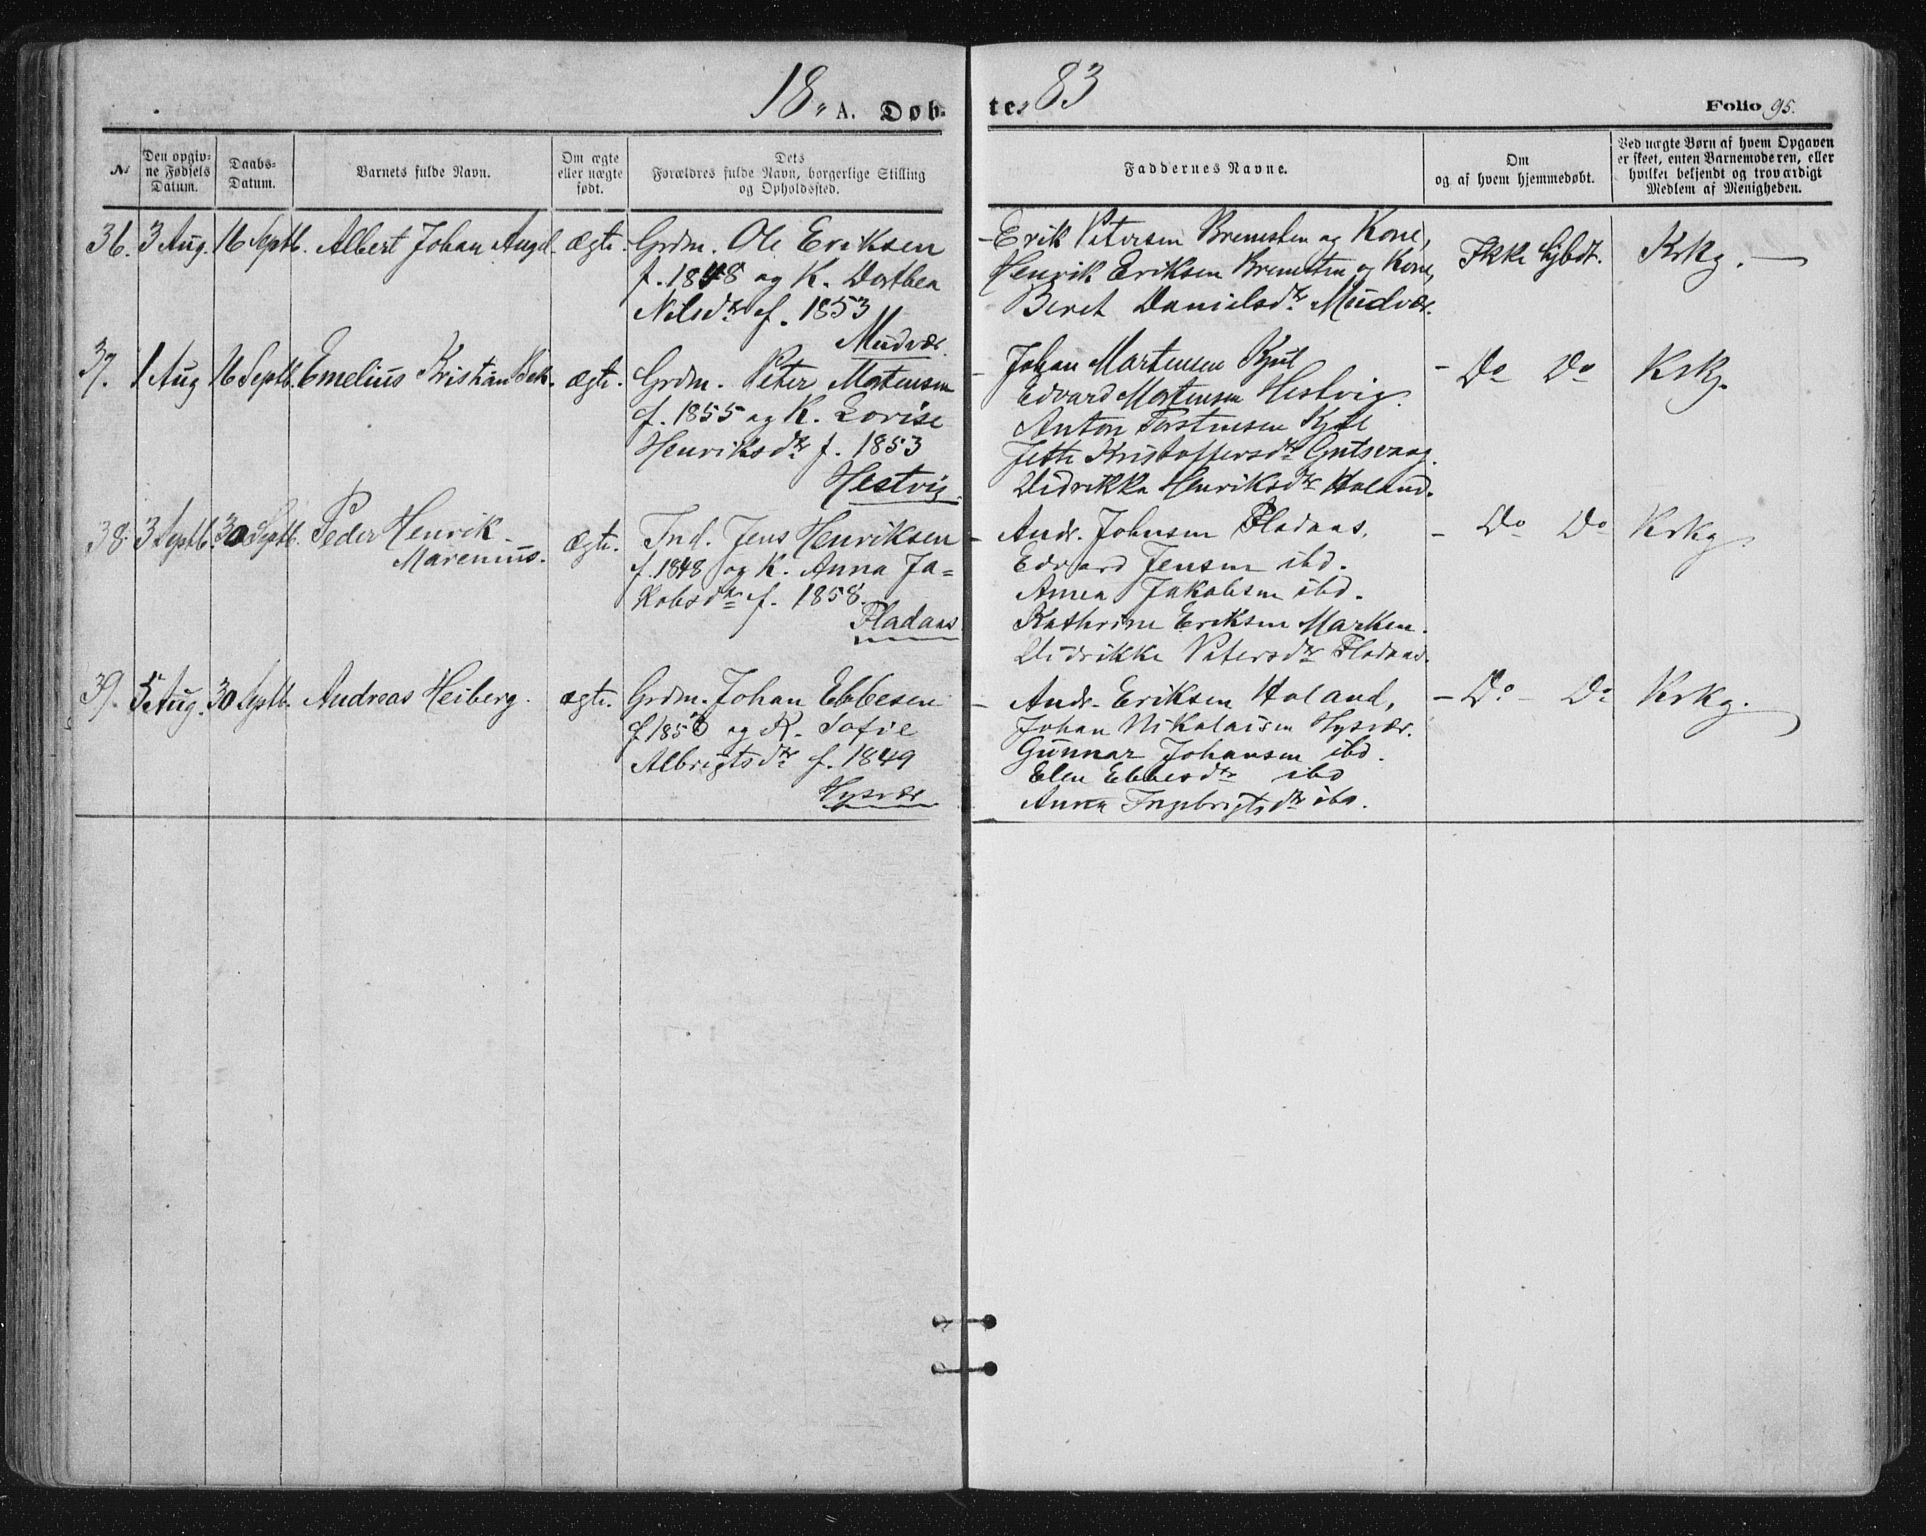 18 A. Døb-
te. 83
Folio 95.
№
Den opgiv-
ne Fødsels
Datum.
Daabs-
Datum.
Barnets fulde Navn.
Om ægte
eller uægte
født.
Dets
Forældres fulde Navn, borgerlige Stilling
og Opholdssted.
Faddernes Navne.
Om
og af hvem hjemmedøbt.
Ved uægte Børn af hvem Opgaven
er skeet, enten Barnemoderen, eller
hvilket bekjendt og troværdigt
Medlem af Menigheden.
36. 3 Aug. 16 Septb. Albert Johan Angel. ægte. Grdm. Ole Eriksen
f. 1848 og K. Dorthea
Nilsdtr f. 1853
Mudvær.
- Erik Petersen Bremsten og Kone,
Henrik Eriksen Bremsten og Kone,
Beret Danielsdtr Mudvær.
Ikke hjbdt. Krkg.
37. 1 Aug 16 Septb. Emelius Kristian ægte. Grdm. Peter Mortensen
f. 1855 og K. Lovise
Henriksdtr f. 1853
Hestvig.
- Johan Martensen Kjul
Edvard Mortensen Hestvig
Anton Torstensen
Jette Kristoffersdtr
Didrikke Henriksdtr Holand.
- Do Do Krkg.
38. 3 Septb. 30 Septb. Peder Henrik
Marenius. ægte. Ind. Jens Henriksen
f. 1848 og K. Anna Ja=
kobsdtr f. 1858.
Fladaas
- Andr. Johnsen Fladaas.
Edvard Jensen ibd.
Anna Jakobsen ibd.
Kathrine Eriksen Marken.
Didrikke Petersdtr Fladaas.
- Do Do Krkg.
39. 5 Aug. 30 Septb. Andreas Heiberg. ægte. Grdm. Johan Ebbesen
f 1850 og K. Sofie
Albrigtsdtr f. 1849
Hysvær
- Andr. Eriksen Holand,
Johan Nikolaisen Hysvær.
Gunnar Johansen ibd.
Elen Ebbesdtr ibd
Anna Ingebrigtsdtr ibd.
- Do - Do Krkg.